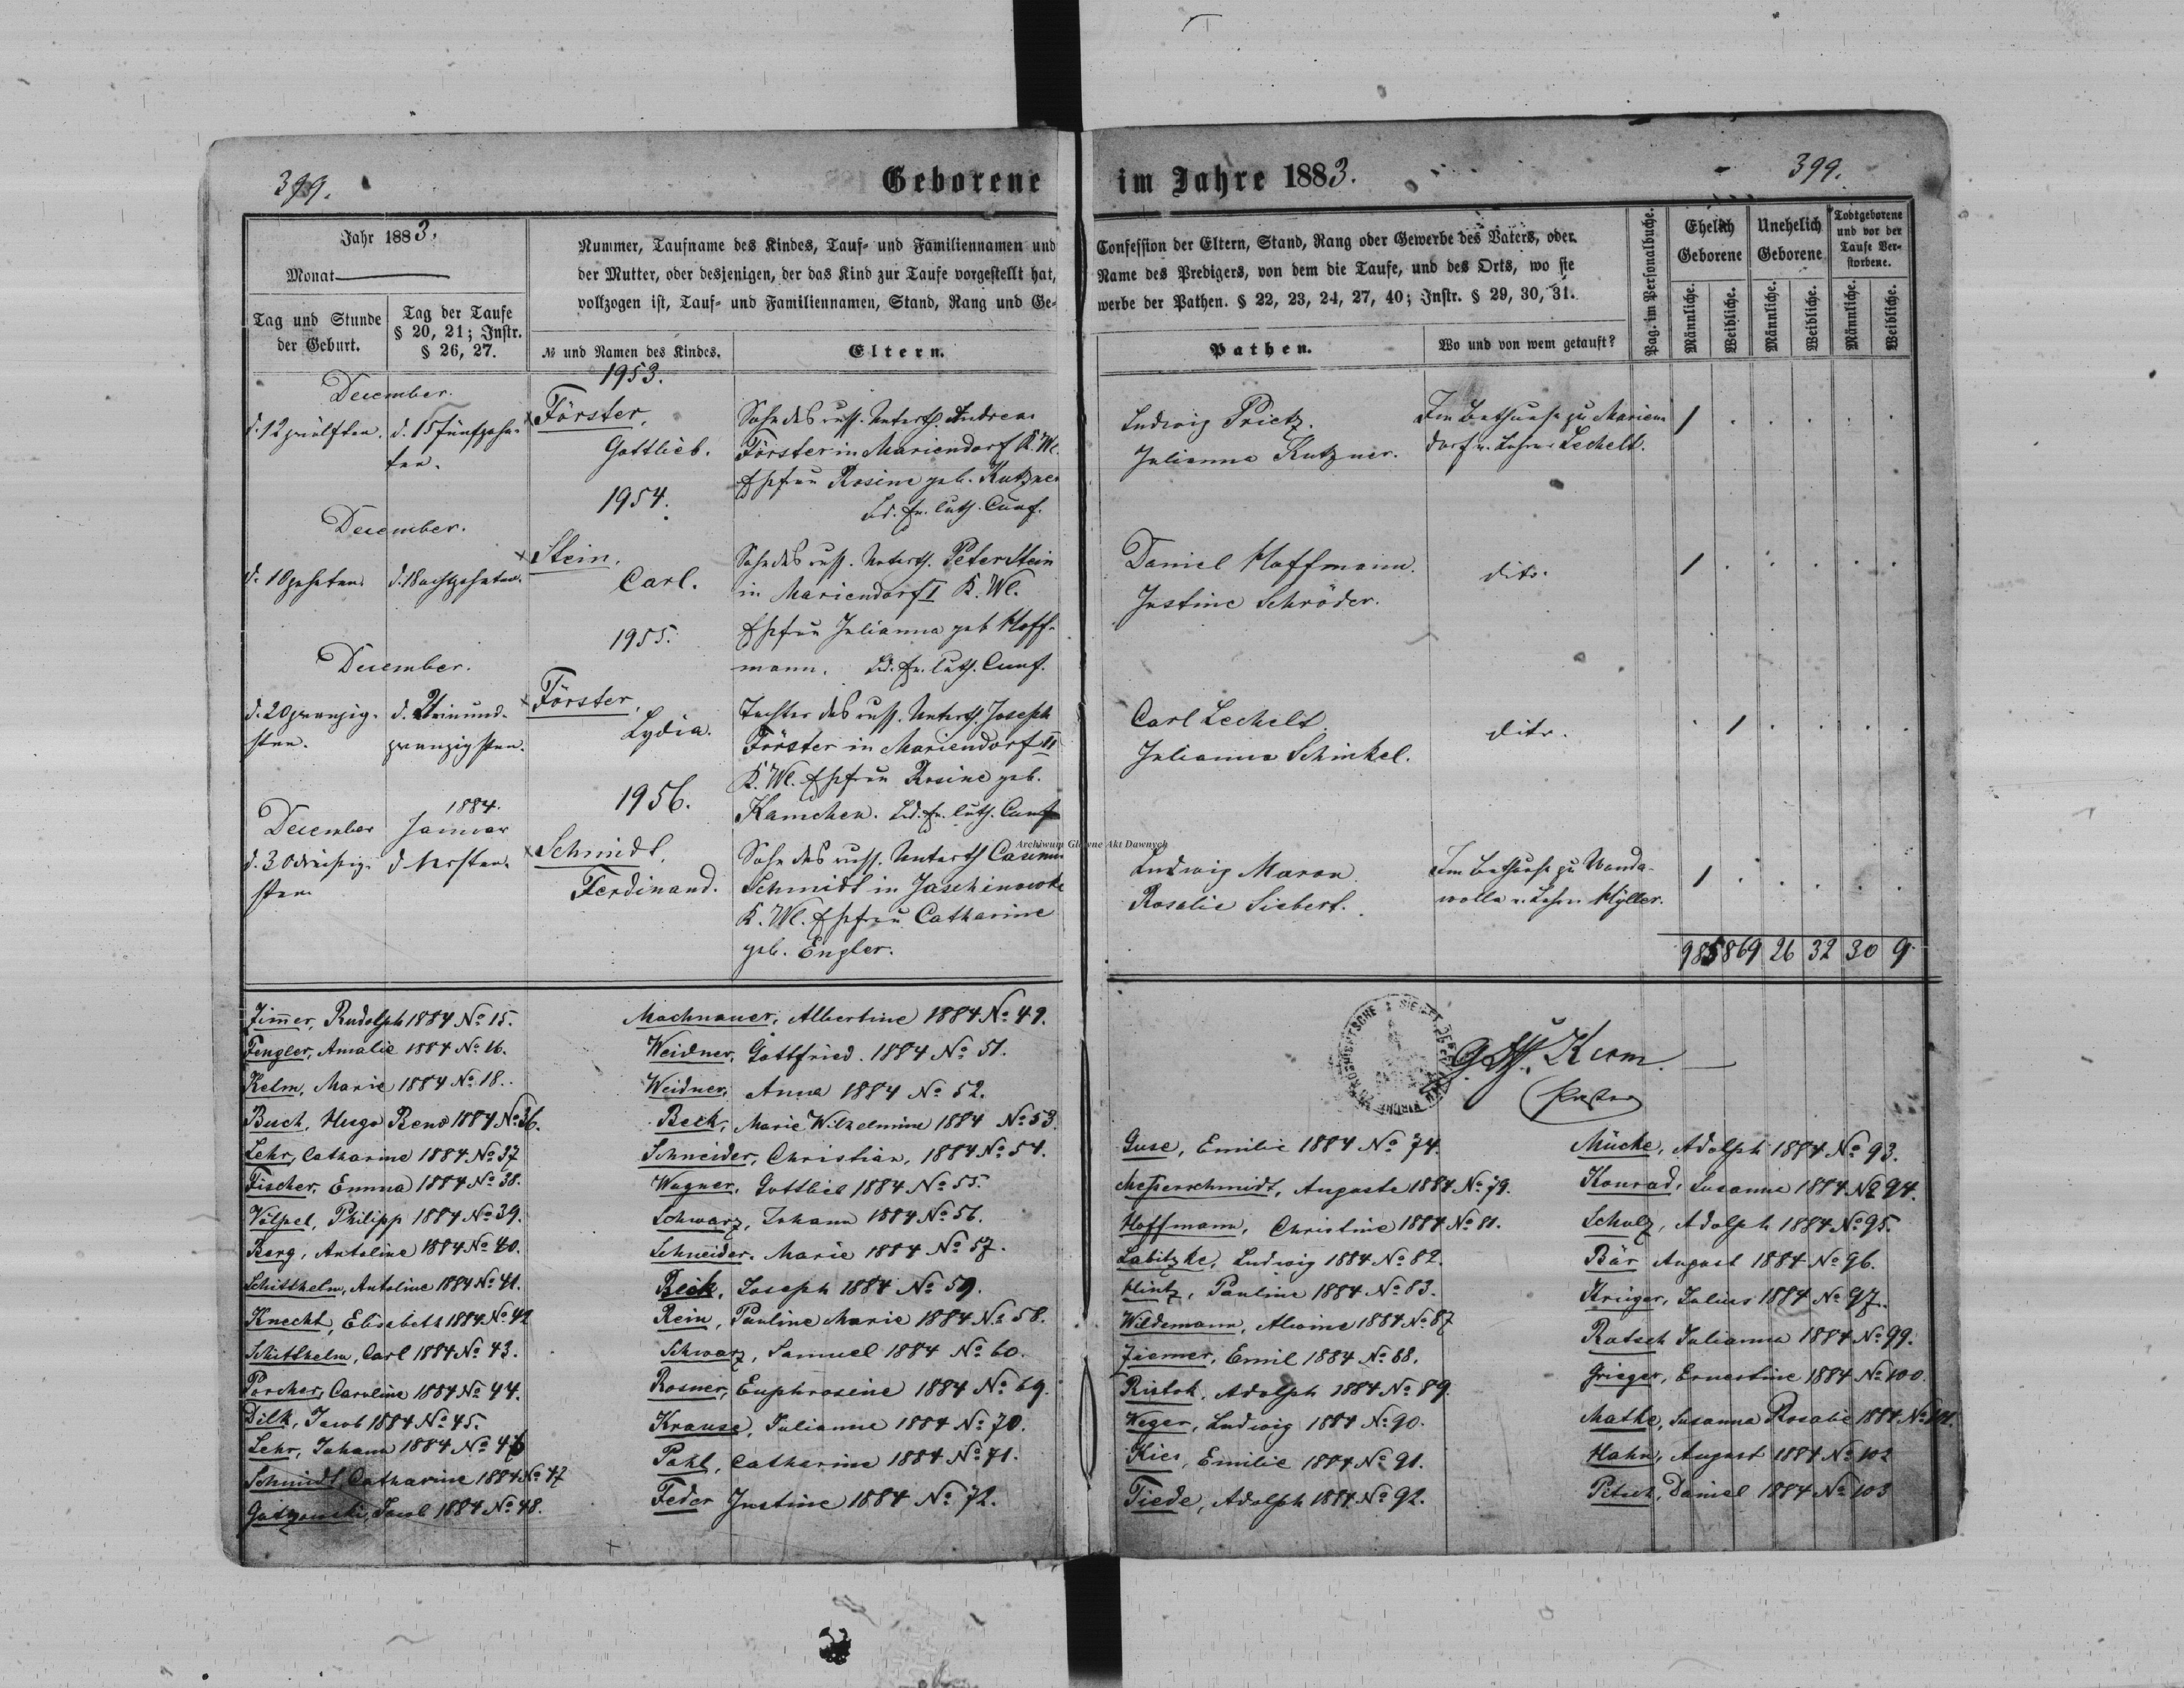 399.
Geborene im Jahre 1883.
399.
Jahr 1883.
Monat
Tag und Stunde
der Geburt.
Tag der Taufe
§ 20, 21; Instr.
§ 26, 27.
Nummer, Taufname des Kindes, Tauf- und Familiennamen und
der Mutter, oder desjenigen, der das Kind zur Taufe vorgestellt hat,
vollzogen ist, Tauf- und Familiennamen, Stand, Rang und Ge-
№ und Namen des Kindes.
Eltern.
Confession der Eltern, Stand, Rang oder Gewerbe des Vaters, oder
Name des Predigers, von dem die Taufe, und des Orts, wo sie
werbe der Pathen. § 22, 23, 24, 27, 40; Instr. § 29, 30, 31.
Pathen.
Wo und von wem getauft?
Pag. im Personalbuche.
Ehelich
Geborene
Unehelich
Geborene
Todtgeborene
und vor der
Taufe Ver-
storbene.
Männliche.
Weibliche.
Männliche.
Weibliche.
Männliche.
Weibliche.
1953.
December.
d. 12 zwölften.
d. 15 fünfzehn-
ten.
Förster,
Gottlieb.
Sohn des russ. Unterth. Andreas
Förster in Mariendorf K. Wl.
Ehefrau Rosine geb. Kutzner
Bd. ev. luth. Conf.
Ludwig Prietz.
Julianna Kutzner.
Im Bethause zu Marien
dorf v. Lehrer Lechelt.
1
1954.
December.
d. 10 zehnten.
d. 18 achtzehnten.
Stein,
Carl.
Sohn des russ. Unterth. Peter Stein
in Mariendorf I K. Wl.
Ehefrau Julianna geb Hoff-
mann. Bd. ev. luth. Conf.
Daniel Hoffmann.
Justine Schröder.
dito.
1
1955.
December.
d. 20 zwanzig-
sten.
d. 21 einund-
zwanzigsten.
Förster,
Lydia.
Tochter des russ. Unterth. Joseph
Förster in Mariendorf II
K. Wl. Ehefrau Rosine geb.
Kamchen. Bd. ev. luth. Conf
Carl Lechelt.
Julianna Schinkel.
dito.
1
1956.
December
d. 30 dreißig-
sten
1884.
Januar
d. 1 ersten.
Schmidt,
Ferdinand.
Sohn des russ. Unterth Casimir
Schmidt in Jaschinowka
K. Wl. Ehefrau Catharine
geb. Engler.
Archiwum Główne Akt Dawnych
Ludwig Maron
Rosalie Siebert.
Im Bethause zu Wanda-
wolla v. Lehrer Hyller.
1
985 869 26 32 30 9.
Zimer, Rudolph 1884 No 15.
Fengler, Amalie 1884 No 16.
Kelm, Marie 1884 No 18.
Buch, Hugo Reno 1884 No 36.
Lehr, Catharine 1884 No 37
Fischer, Emma 1884 No 38.
Völpel, Philipp 1884 No 39.
Berg, Antoline 1884 No 40.
Schitthelm, Antoline 1884 No 41.
Knecht, Elisabeth 1884 No 42
Schitthelm, Carl 1884 No 43.
Porcher, Caroline 1884 No 44.
Dilk, Jacob 1884 No 45.
Lehr, Johann 1884 No 46
Schmidt, Catharine 1884 No 47
Jacob 1884 No 48.
Machnauer, Albertine 1884 No 49.
Weidner, Gottfried. 1884 No 51.
Weidner, Anna 1884 No 52.
Beck, Marie Wilhelmine 1884 No 53.
Schneider, Christian, 1884 No 54.
Wagner, Gottlieb 1884 No 55.
Schwarz, Johann 1884 No 56.
Schneider, Marie 1884 No 57.
Beck, Joseph 1884 No 59.
Rein, Pauline Marie 1884 No 58.
Schwarz, Samuel 1884 No 60.
Rosner, Euphrosine 1884 No 69.
Krause, Julianne 1884 No 70.
Pahl, Catharine 1884 No 71.
Feder Justine 1884 No 72.
Kerm.
Pastor
Guse, Emilie 1884 No 74.
Messerschmidt, Auguste 1884 No 79.
Hoffmann, Christine 1884 No 81.
Labitzke, Ludwig 1884 No 82.
Hintz, Pauline 1884 No 83.
Wildemann, Alwine 1884 No 87
Ziemer, Emil 1884 No 88.
Ristok, Adolph 1884 No 89.
Weger, Ludwig 1884 No 90.
Kies, Emilie 1884 No 91.
Tiede, Adolph 1884 No 92.
Mücke, Adolph 1884 No 93.
Konrad, Susanne 1884 No 94.
Schulz, Adolph 1884 No 95.
Bär August 1884 No 96.
Krüger, Julius 1884 No 97.
Ratsch Julianna 1884 No 99.
Grieger, Ernestine 1884 No 100.
Mathe, Susanna Rosalie 1884 No 101.
Hahn, August 1884 No 102
Petsch, Daniel 1884 No 103